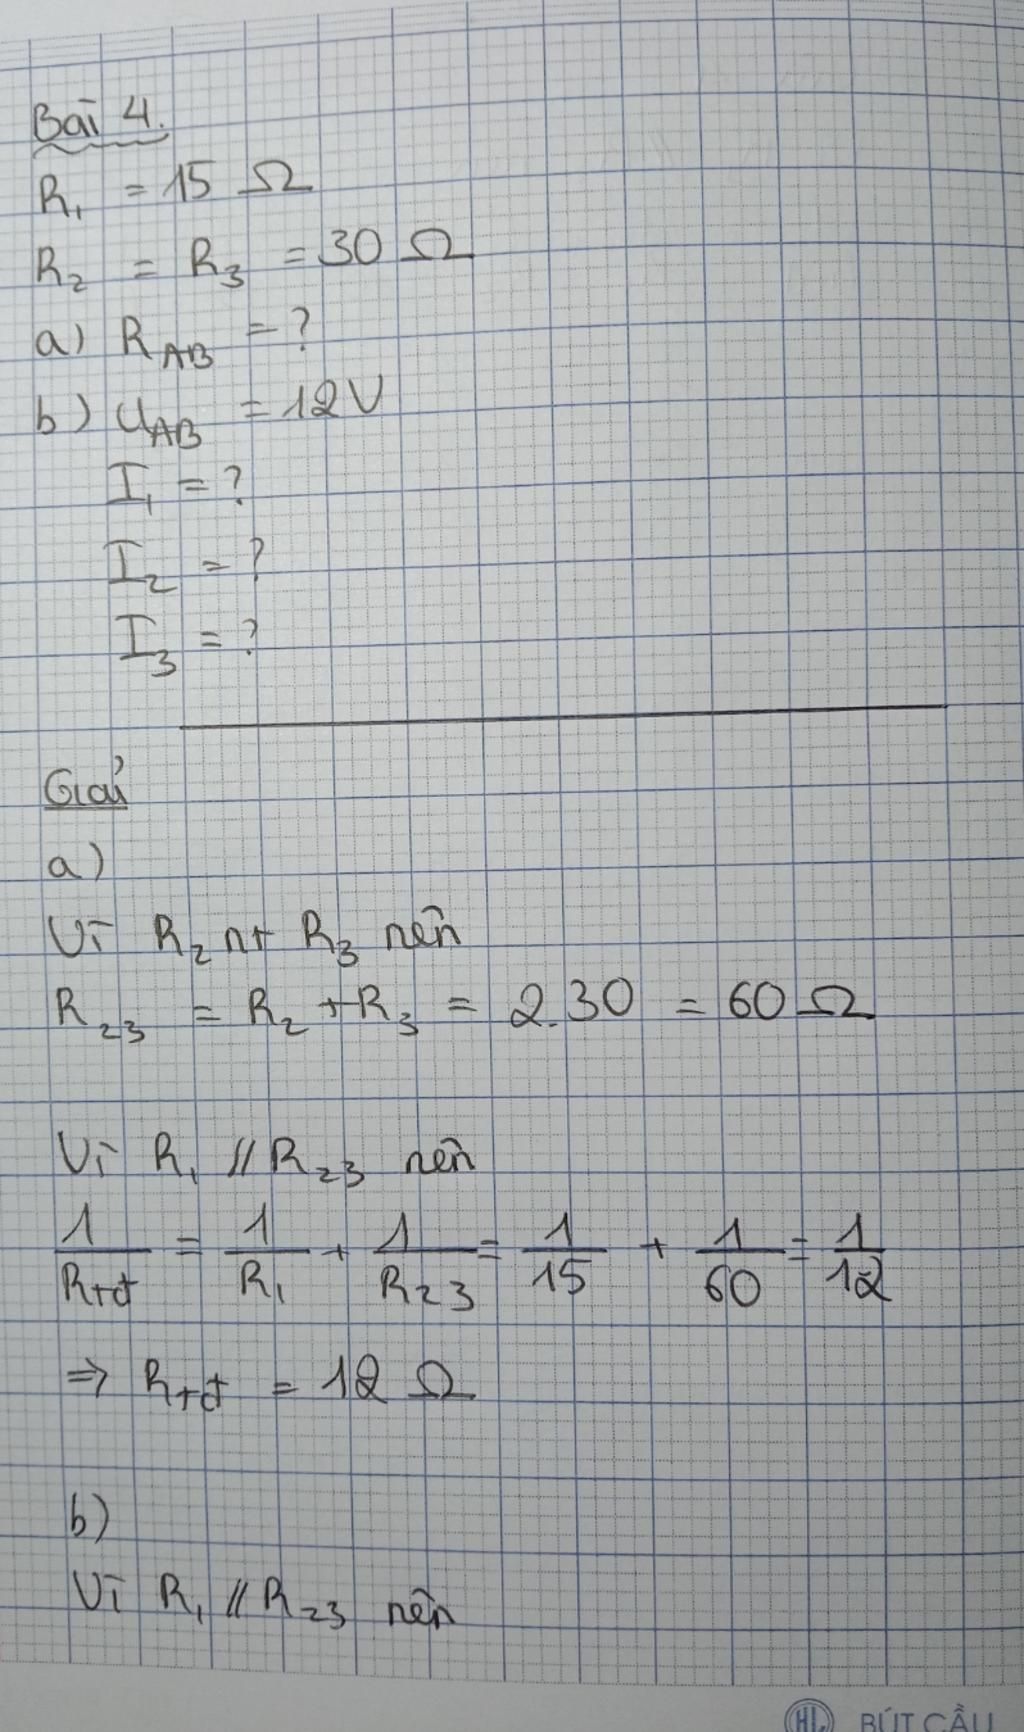 Bài 4.
R₁ = 15 Ω
R₂ = R₃ = 30 Ω
a) R_AB = ?
b) U_AB = 12V
I₁ = ?
I₂ = ?
I₃ = ?
Giải
a)
Vì R₂ nt R₃ nên
R₂₃ = R₂ + R₃ = 2.30 = 60 Ω
Vì R₁ // R₂₃ nên
1/Rtđ = 1/R₁ + 1/R₂₃ = 1/15 + 1/60 = 1/12
⇒ Rtđ = 12 Ω
b)
Vì R₁ // R₂₃ nên
HL BÚT CẦU